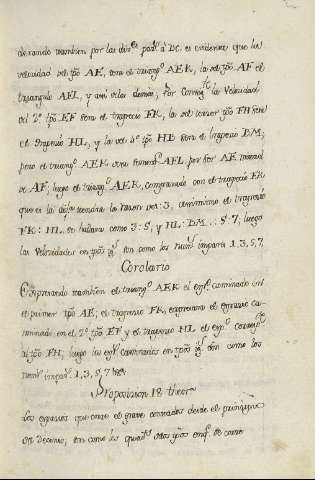 tirando tambien por las div.s paral.s à BC. es evidente que la
velocidad del tpõ AE, sera el triang.o AEK, la del tpõ AF el
triangulo AFL, y asi delas demas, por consig.te la velocidad
del 2.o tpõ EF sera el trapecio FK, la del tercer tpõ FH sera
el trapecio HL, y la del 4.o tpõ HB sera el trapecio BM;
pero el triang.o AEK es al AFL por ser AE mitad
de AF; luego el triang.o AEK, comparado con el trapecio FK
que es la dif.a tendra la razon de 1:3, asimismo el trapecio
FK: HL se hallara como 3:5, y HL: BM :: 5:7; luego
las velocidades en tpõs ig.s son como los num.s impares 1, 3, 5, 7.
Corolario
Expresando tambien el triang.o AEK el esp.o caminado en
el primer tpõ AE, el trapecio FK, expresara el espacio ca-
minado en el 2.o tpõ EF y el trapecio HL el esp.o
al tpõ FH, luego los esp.s caminados en tpõs ig.s son como los
num.s impar.s 1, 3, 5, 7 &c.
Proposicion 12 theor.
Los espacios que corre el grave contados desde el principio
de su descenso, son como los quad.s de los tpõs